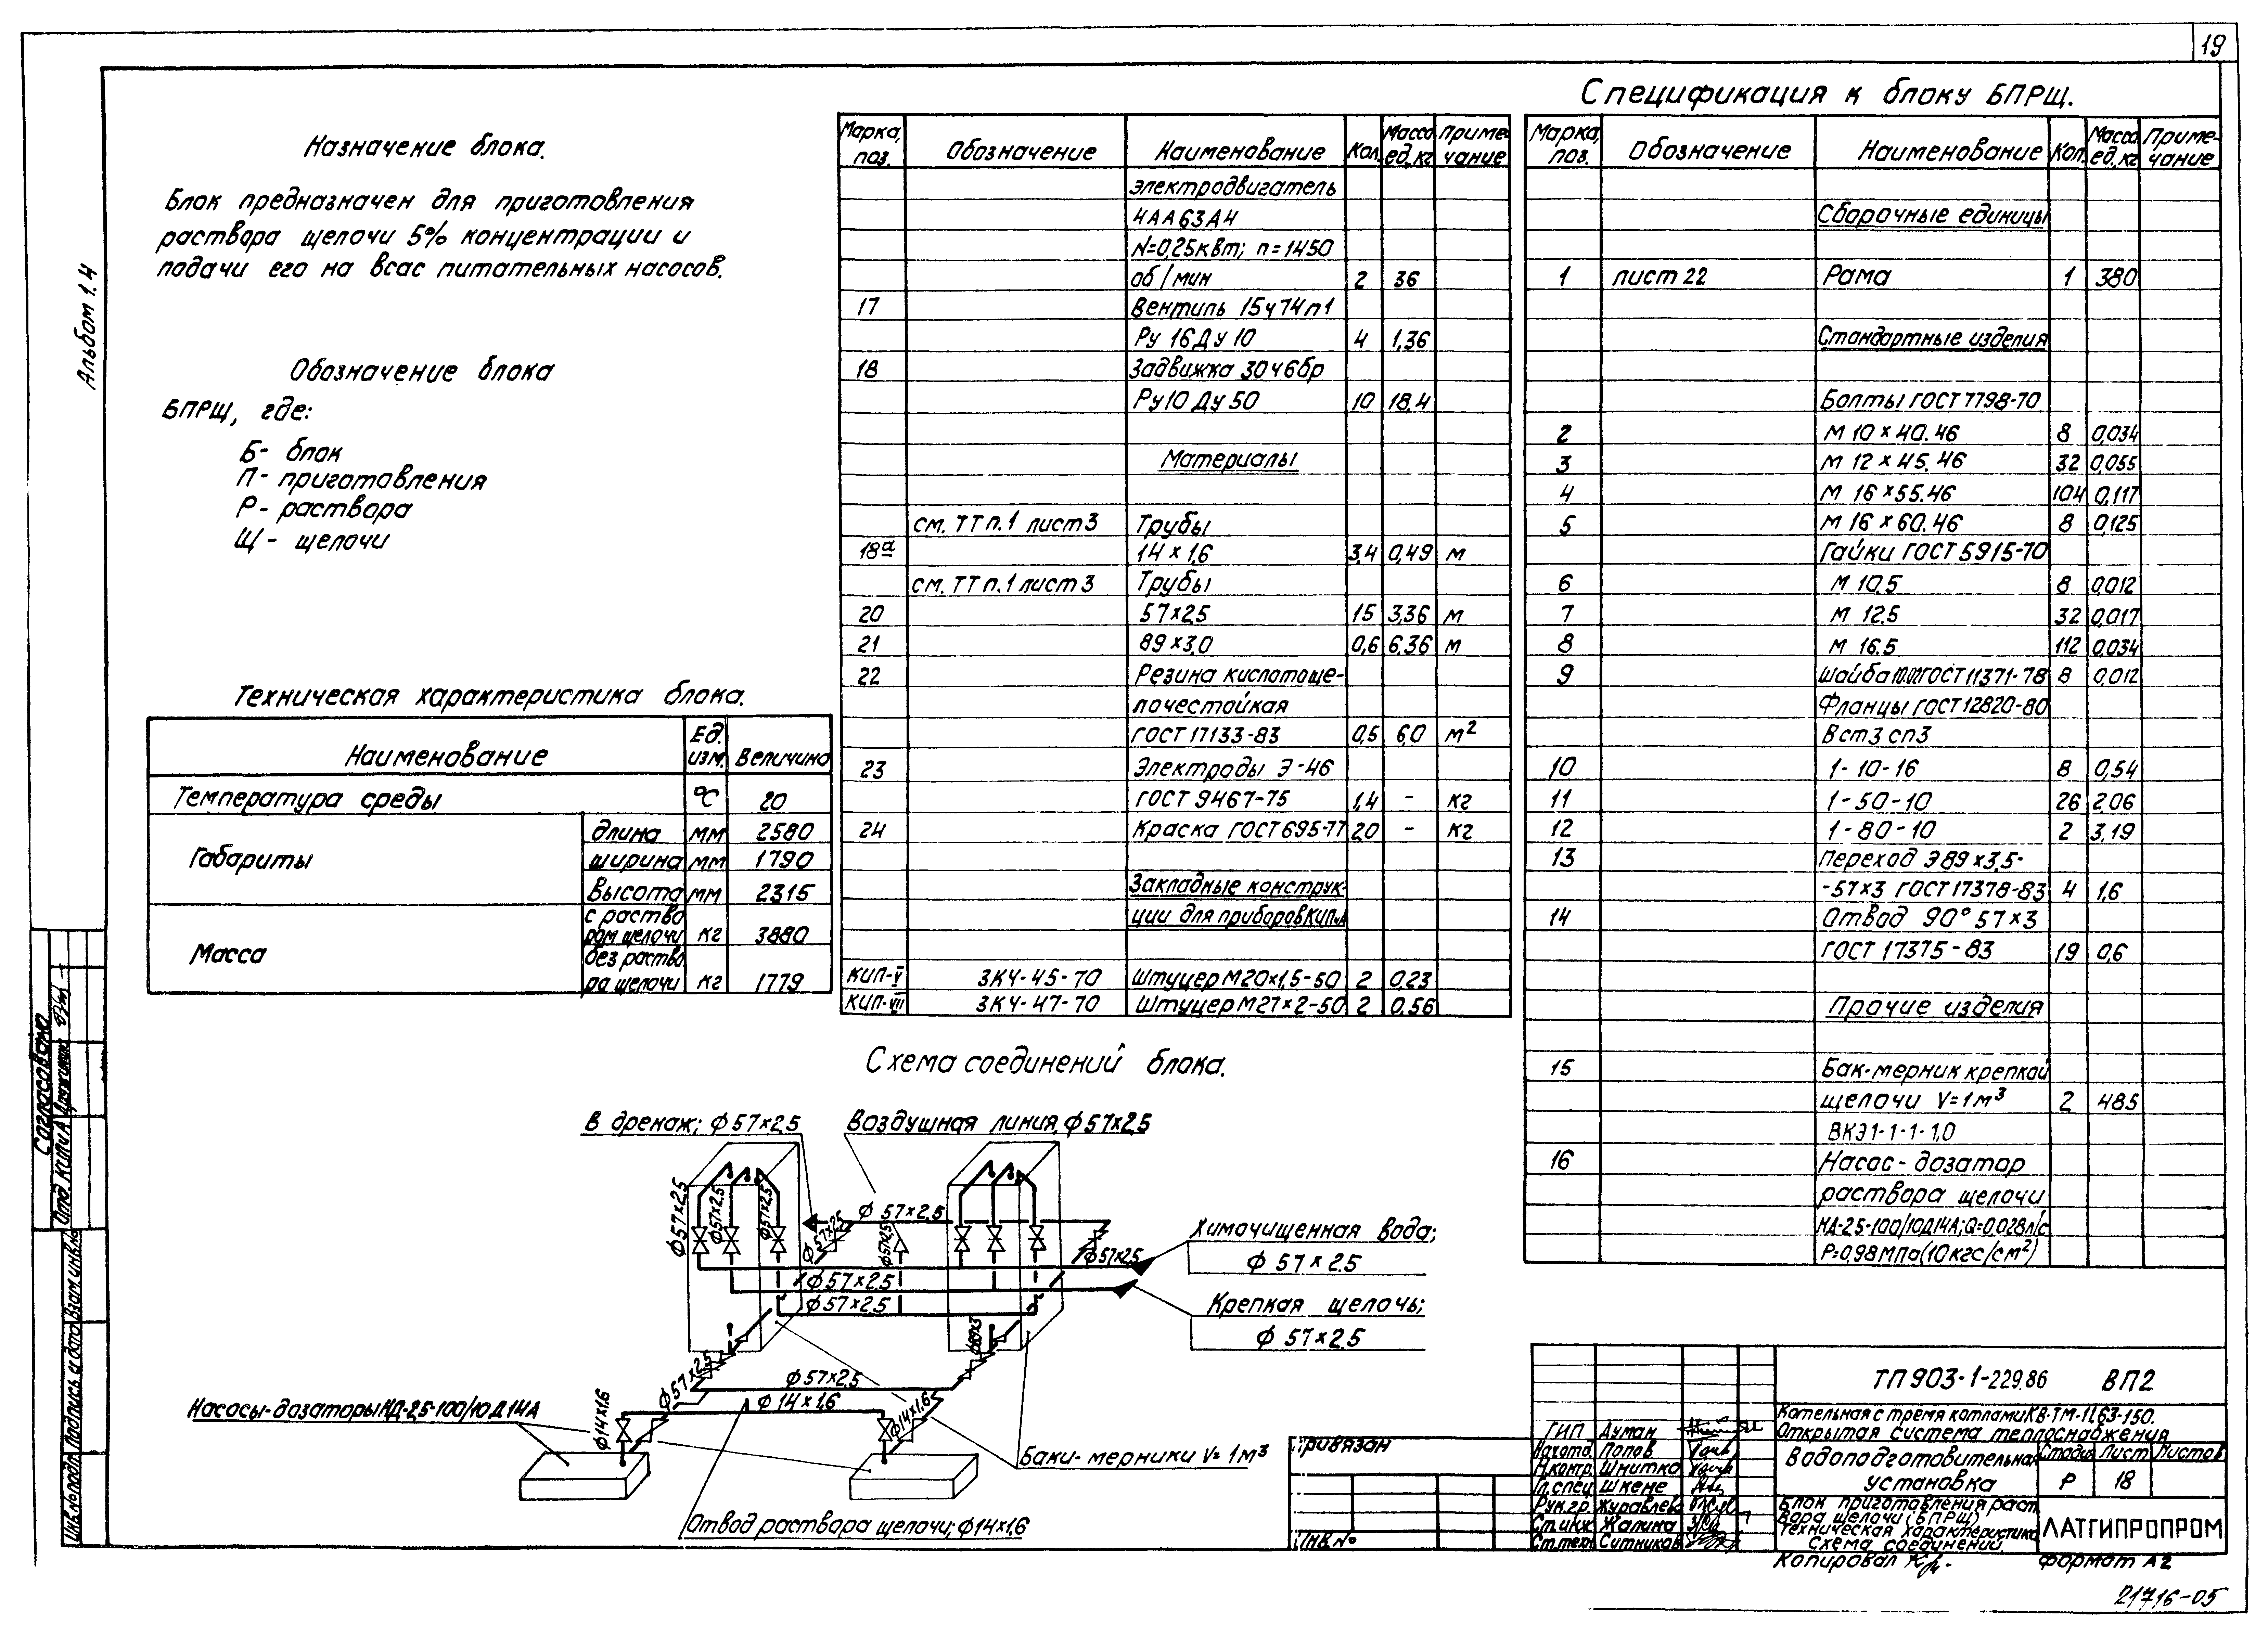 19
Альбом 1.4
Назначение блока.
Блок предназначен для приготовления
раствора щелочи 5% концентрации и
подачи его на всас питательных насосов.
Обозначение блока
БПРЩ, где:
Б- блок
П- приготовления
Р- раствора
Щ- щелочи
Техническая характеристика блока.
Наименование Ед. изм. Величина
Температура среды °С 20
Габариты длина мм 2580
ширина мм 1790
высота мм 2315
Масса с раство
ром щелочи кг 3880
без раство.
ра щелочи кг 1779
Марка, поз. Обозначение Наименование Кол. Масса ед.кг Приме- чание
электродвигатель
4АА63А4
N=0,25квт; п=1450
об/мин 2 36
17 Вентиль 15ч74п1
Ру 16 Ду 10 4 1,36
18 Задвижка 30ч6бр
Ру10 Ду 50 10 18,4
Материалы
см. ТТ п.1 лист 3 Трубы
18а 14×1,6 3,4 0,49 м
см. ТТ п.1 лист 3 Трубы
20 57×2,5 15 3,36 м
21 89×3,0 0,6 6,36 м
22 Резина кислотоще-
лочестойкая
ГОСТ 17133-83 0,5 6,0 м²
23 Электроды Э-46
ГОСТ 9467-75 1,4 - кг
24 Краска ГОСТ 695-77 2,0 - кг
Закладные конструк-
ции для приборов КИПиА
КИП-V ЗКЧ-45-70 Штуцер М20×1,5-50 2 0,23
КИП-VII ЗКЧ-47-70 Штуцер М27×2-50 2 0,56
Спецификация к блоку БПРЩ.
Марка, поз. Обозначение Наименование Кол. Масса ед.кг Приме- чание
Сборочные единицы
1 лист 22 Рама 1 380
Стандартные изделия
Болты ГОСТ 7798-70
2 М 10×40.46 8 0,034
3 М 12×45.46 32 0,055
4 М 16×55.46 104 0,117
5 М 16×60.46 8 0,125
Гайки ГОСТ 5915-70
6 М 10.5 8 0,012
7 М 12.5 32 0,017
8 М 16.5 112 0,034
9 Шайба 10.02 ГОСТ 11371-78 8 0,012
Фланцы ГОСТ 12820-80
В ст3 сп3
10 1-10-16 8 0,54
11 1-50-10 26 2,06
12 1-80-10 2 3,19
13 Переход Э89×3,5-
-57×3 ГОСТ 17378-83 4 1,6
14 Отвод 90° 57×3
ГОСТ 17375-83 19 0,6
Прочие изделия
15 Бак-мерник крепкой
щелочи V=1м³ 2 485
ВКЭ1-1-1-1,0
16 Насос-дозатор
раствора щелочи
НД-2,5-100/10Д14А; Q=0,028л/с
Р=0,98МПа(10кгс/см²)
Схема соединений блока.
В дренаж; ф57×2,5
Воздушная линия, ф57×2,5
ф57×2,5
ф57×2,5
ф57×2,5
ф57×2,5
ф57×2,5
ф57×2,5
ф57×2,5
ф57×2,5
ф57×2,5
Химочищенная вода;
ф 57×2,5
Крепкая щелочь;
ф 57×2,5
ф89×3
ф57×2,5
ф57×2,5
ф14×1,6
ф14×1,6
ф14×1,6
Насосы-дозаторы НД-2,5-100/10Д14А
Баки-мерники V=1м³
Отвод раствора щелочи; ф14×1,6
Согласовано
Отд. КИПиА
Инв.№подл. Подпись и дата Взам.инв.№
Привязан
Инв.№
ТП 903-1-229.86 ВП2
Котельная с тремя котлами КВ-ТМ-11,63-150.
Открытая система теплоснабжения
ГИП Думан
Нач.отд. Попов
Н.контр. Шнитко
Гл.спец. Шкене
Рук.гр. Журавлева
Ст.инж. Жалина
Ст.техн. Ситников
Водоподготовительная
установка
Стадия Лист Листов
Р 18
Блок приготовления раст
вора щелочи (БПРЩ)
Техническая характеристика
Схема соединений.
ЛАТГИПРОПРОМ
Копировал
формат А2
21716-05